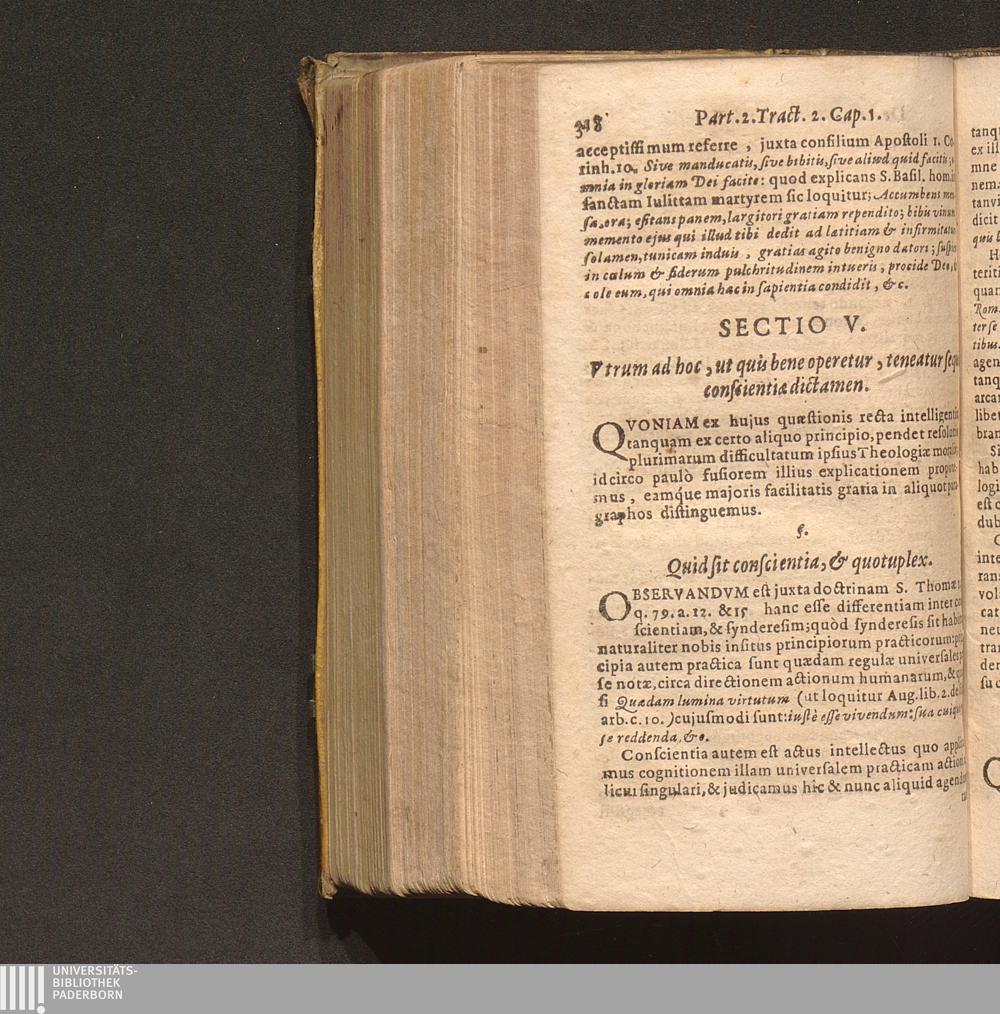 318 Part.2.Tract. 2. Cap.1.
acceptissimum referre, juxta consilium Apostoli 1. Co
rinh.10. Sive manducatis, sive bibitis, sive aliud quid facitis;
omnia in gloriam Dei facite: quod explicans S. Basil. hom.
sanctam Iulittam martyrem sic loquitur; Accumbens men
sa, ora; esitans panem, largitori gratiam rependito; bibis vinum
memento ejus qui illud tibi dedit ad lætitiam & infirmitatu
solamen, tunicam induis, gratias agito benigno datori; suspi
in cœlum & siderum pulchritudinem intueris, procide Deo,
cole eum, qui omnia hac in sapientia condidit, &c.
SECTIO V.
Vtrum ad hoc, ut quis bene operetur, teneatur sequ
conscientiæ dictamen.
QVONIAM ex hujus quæstionis recta intelligentia
tanquam ex certo aliquo principio, pendet resolutio
plurimarum difficultatum ipsius Theologiæ moralis
idcirco paulò fusiorem illius explicationem propone
mus, eamq́ue majoris facilitatis gratia in aliquot para
graphos distinguemus.
§.
Quid sit conscientia, & quotuplex.
OBSERVANDVM est juxta doctrinam S. Thomæ 1.
q. 79. a. 12. & 15 hanc esse differentiam inter co
scientiam, & synderesim; quòd synderesis sit habit
naturaliter nobis insitus principiorum practicorum: prin
cipia autem practica sunt quædam regulæ universales p
se notæ, circa directionem actionum humanarum, & qu
si Quædam lumina virtutum (ut loquitur Aug. lib. 2. de li
arb. c. 10.) cujusmodi sunt: iustè esse vivendum: sua cuique
se reddenda, &c.
Conscientia autem est actus intellectus quo applica
mus cognitionem illam universalem practicam actioni
licui singulari, & judicamus hîc & nunc aliquid agend
tanqu
ex ill
mne
nem
tanvi
dicit
quis l
H
teriti
quan
Rom.
ter se
tibus.
agen
tanq
arcan
liber
bran
Si
hab
logi
est c
dub
inte
rans
vol
cat
neu
tra
den
su c
Q
UNIVERSITÄTS-
BIBLIOTHEK
PADERBORN